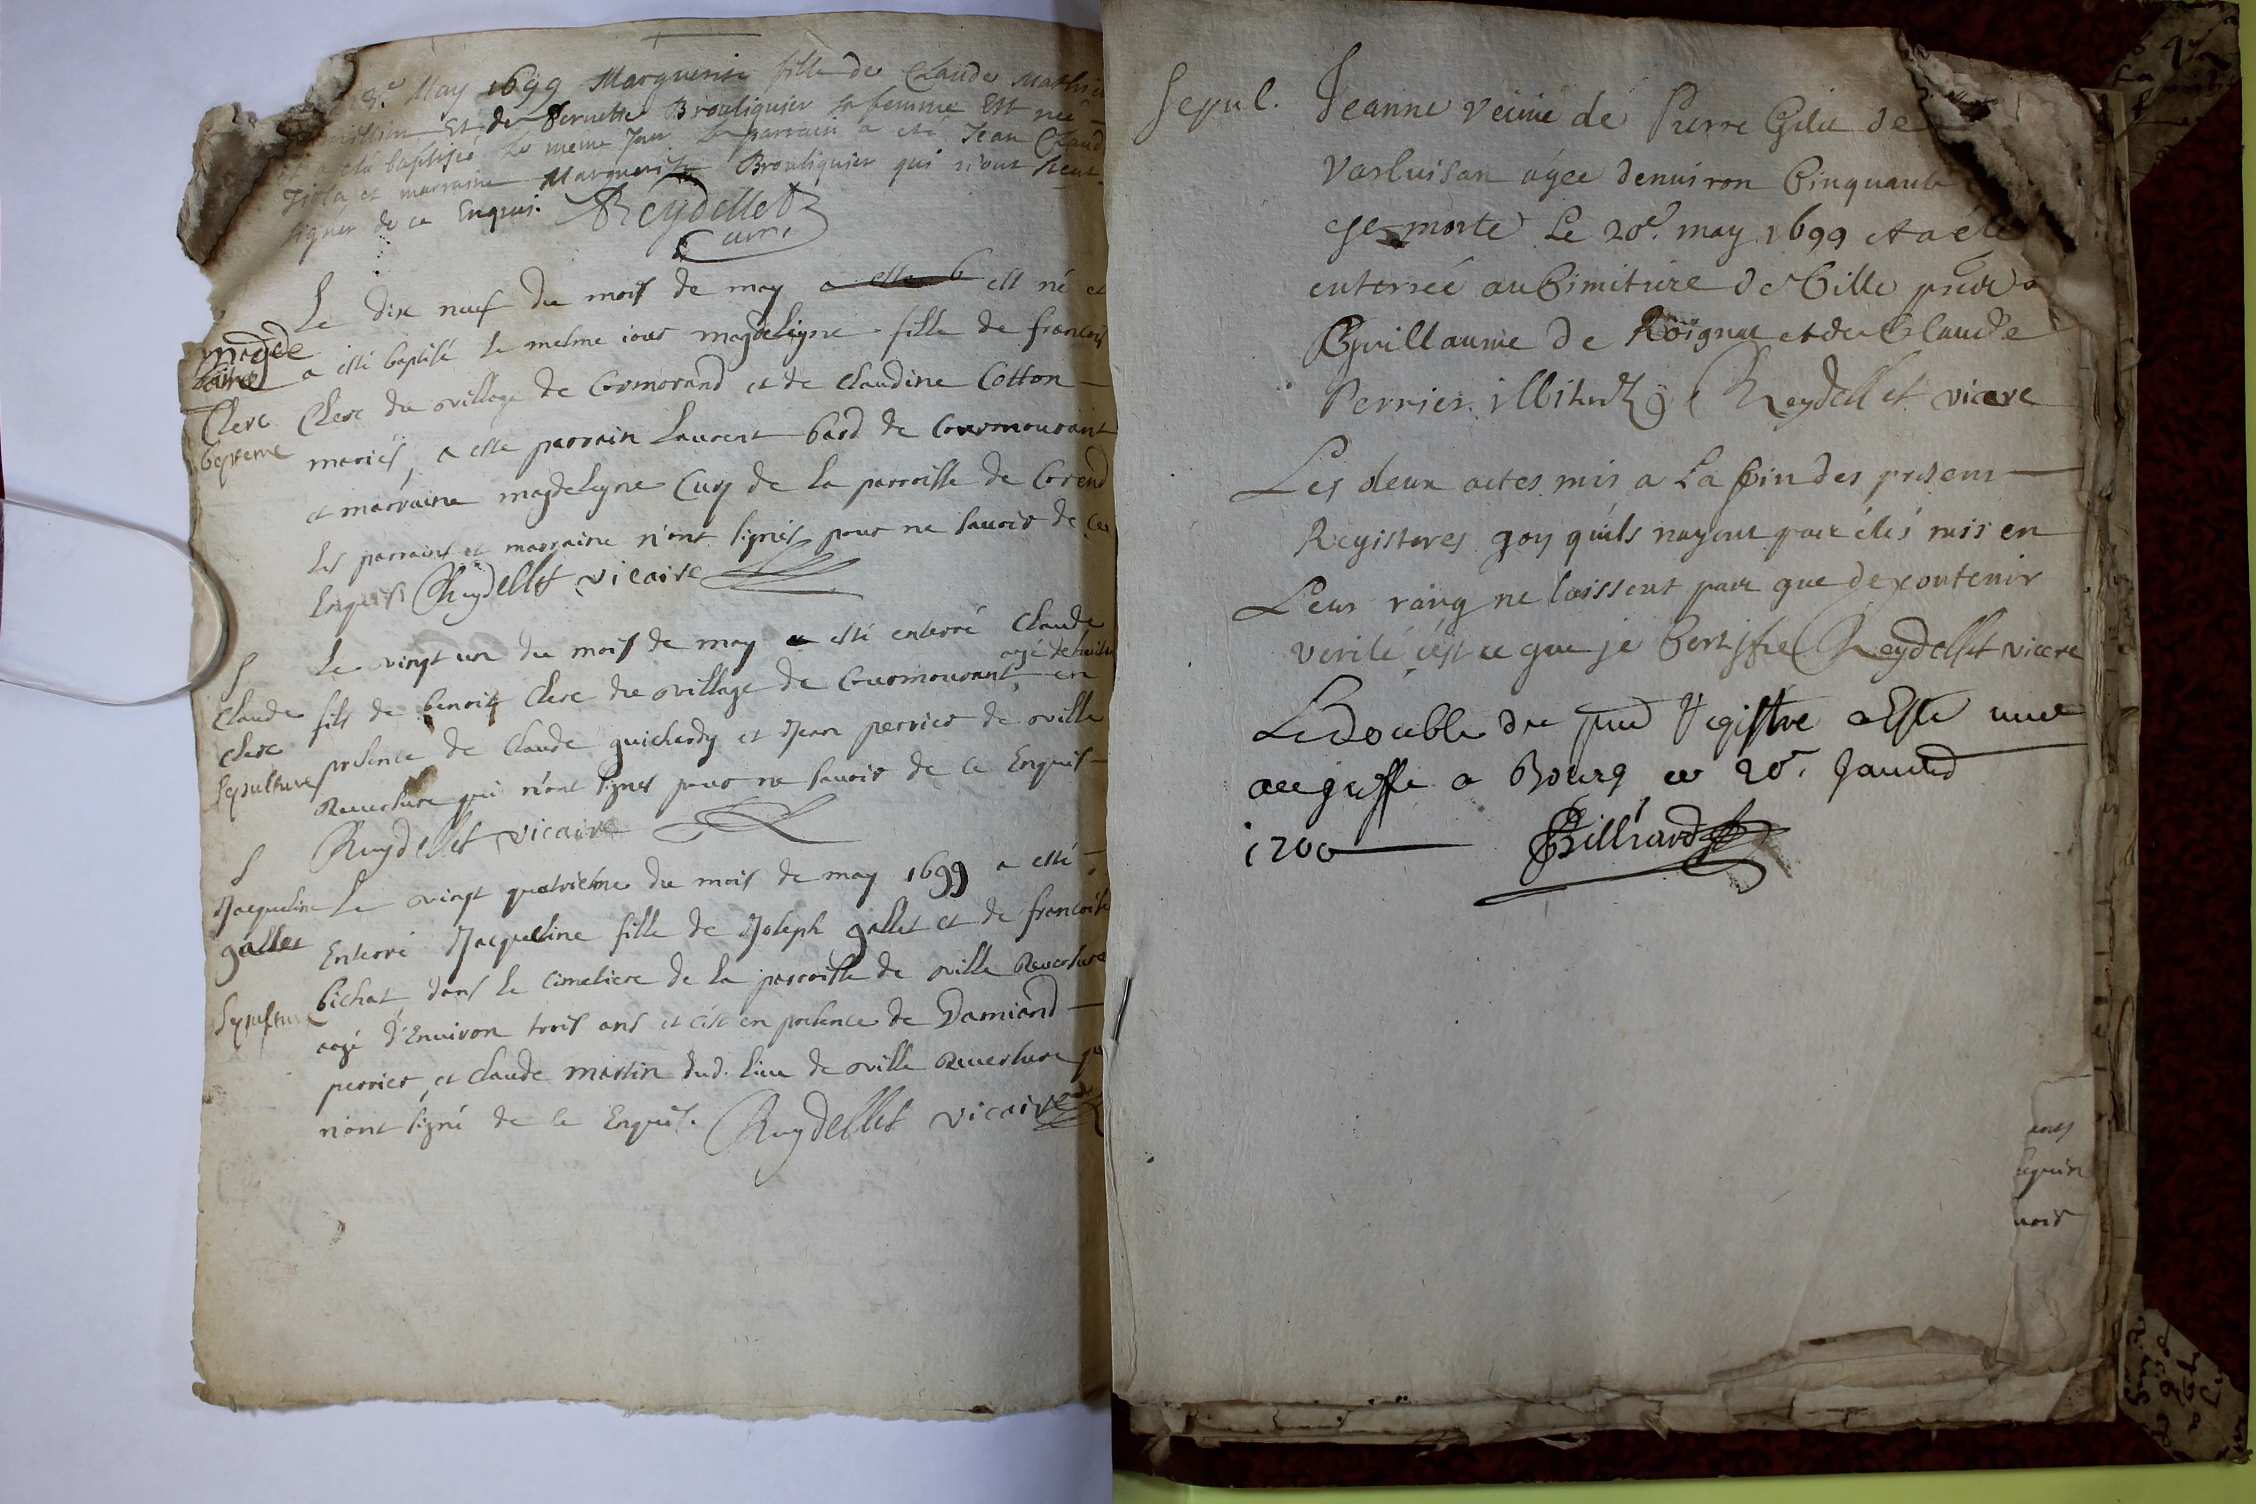 8.e May 1699 Marguerite fille de Claude Mathieu
Et de Pernette Brouliquier sa femme Est née
a eté baptisée Le meme Jour Le parrain a eté Jean Claude
et marraine Marguerite Brouliquier qui n'ont sceu
signer de ce Enquis. Reydellet
Curé
Le dix neuf du mois de may a esté b est né et
a esté baptisé le mesme iour magdeleyne fille de francois
magdelaine
Clerc
bapteme
Clerc du village de Cormorand et de Claudine Cotton
mariés, a esté parrain Laurent bard de Courmourant
et marraine magdeleyne Cury de la parroisse de Corend
les parrains et marraine n'ont signés pour ne savoir de ce
Enquis Reydellet vicaire
S
Claude
Clerc
Sepulture
Le vingt un du mois de may a esté enterré Claude
agé de huit
fils de benoit Clerc du village de Courmourant en
presence de Claude guichardy et Jean perrier de ville
Reversure qui n'ont signés pour ne savoir de ce Enquis
Reydellet vicaire
S
Jacqueline
gallet
Sepulture
Le vingt quatriesme du mois de may 1699 a esté
Enterré Jacqueline fille de Joseph gallet et de francoise
bichat dans le cimetiere de la parroisse de ville Reversure
agé d'Environ trois ans et c'est en presence de Damiand
perrier et Claude martin dud. lieu de ville Reversure qui
n'ont signé de ce Enquis. Reydellet vicaire
Sepul. Jeanne veuve de Pierre Gilie de
Varluisan agee denuiron Cinquante
est morte Le 20e. may 1699 et a été
enterrée au Cimitiere de Ville
Guillaume de Roignat et de Claude
Perrier illiterez Reydellet vicere
Les deux actes mis a La fin des presens
Registeres qoy quils nayent pair étés mis en
Leur rang ne laissent pair que de contenir
verité c'est ce que je Certifie Reydellet vicere
Le double du pnt Registre a Esté mis
au greffe a Bourg ce 20e. Janvier
1700 Billiard
ans
equin
voir